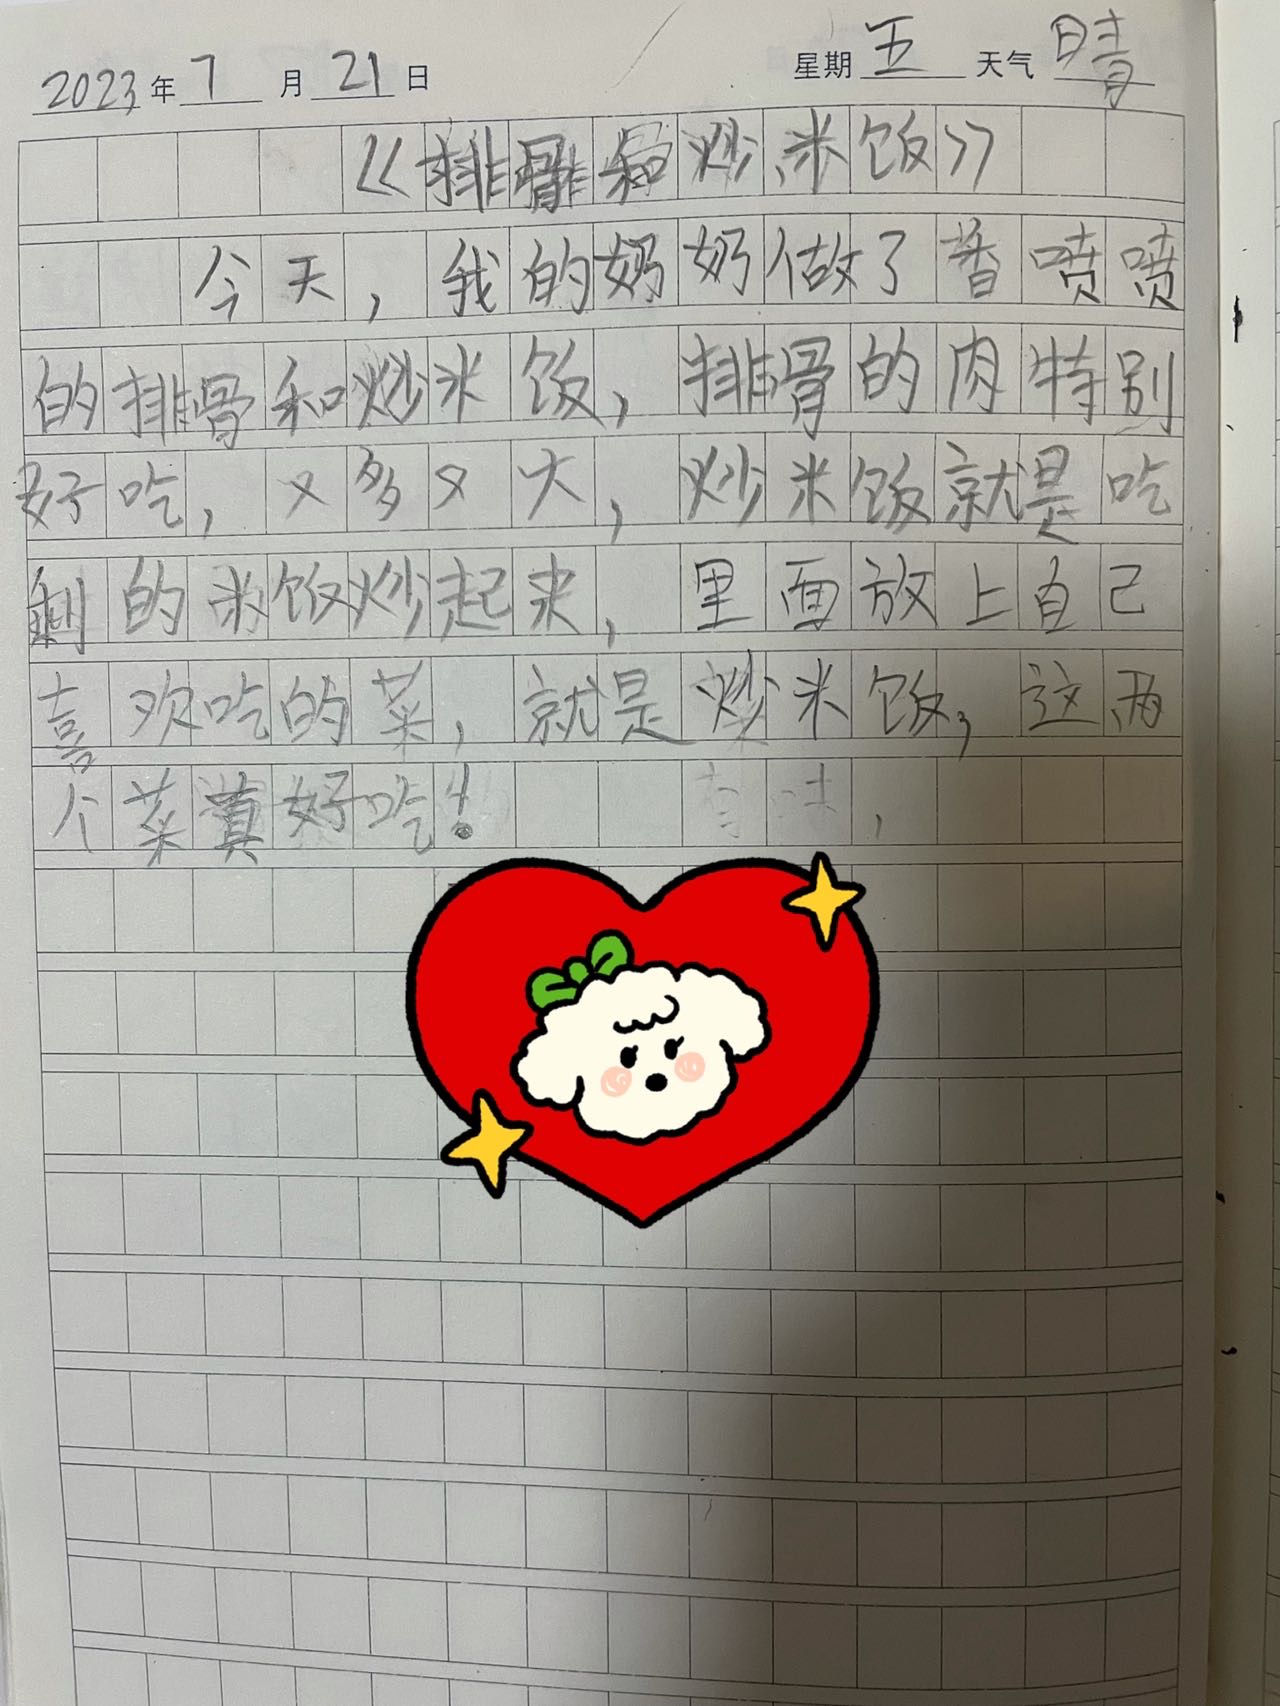 2023年7月21日 星期五 天气晴
《排骨和炒米饭》
今天，我的奶奶做了香喷喷
的排骨和炒米饭，排骨的肉特别
好吃，又多又大，炒米饭就是吃
剩的米饭炒起来，里面放上自己
喜欢吃的菜，就是炒米饭，这两
个菜真好吃！